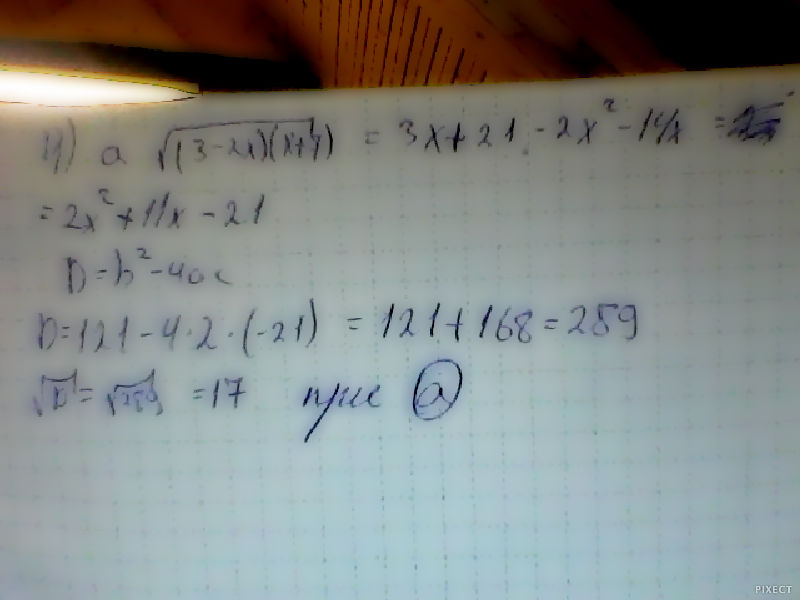 4) a √(3-2x)(x+7) = 3x+21-2x²-14x =
= 2x²+11x-21
D=b²-4ac
D=121-4·2·(-21) = 121+168=289
√D=√289 =17 при a
PIXECT